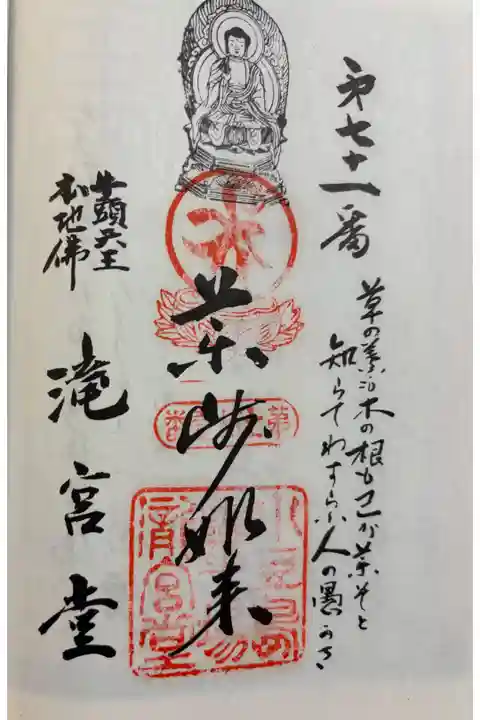 第七十一番
草の葉も木の根も己が薬そと
知らてわすらふ人の愚かさ
薬師如来
牛頭天王
本地佛
滝宮堂